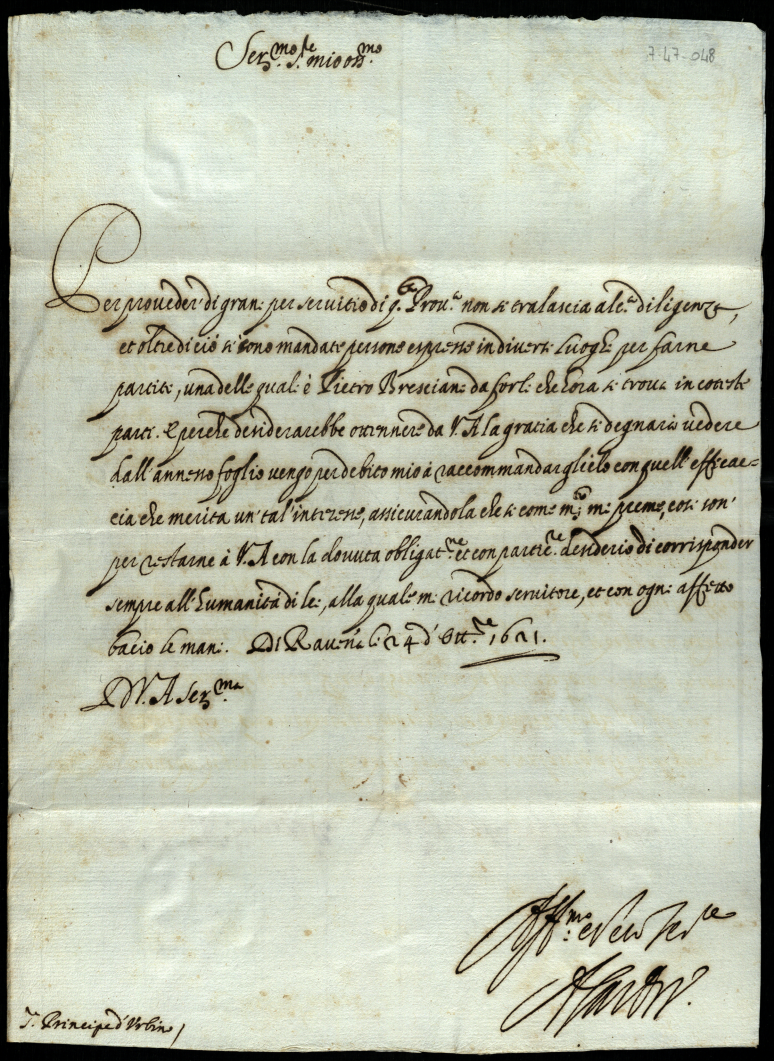 7-47-048
Ser.mo S.re mio oss.mo
Per proveder di grani per servitio di q.sta Prov.a non si tralascia alc.a diligenza,
et oltre di ciò si sono mandate persone espresse in diversi luoghi per farne
partite, una delle quali è Pietro Bresciani da Forlì che hora si trova in coteste
parti. E perche desiderarebbe ottennere da V.A la gratia che si degnarà vedere
dall'annesso foglio vengo per debito mio à raccommandarglielo con quell'effica=
cia che merita un tal'interesse, assicurandola che si come m.to mi preme, così son'
per restarne à V.A con la dovuta obligat.ne et con partic.re desiderio di corrisponder
sempre all'humanità di lei, alla quale mi ricordo servitore, et con ogni affetto
bacio le mani. Di Raven.a li 24 d'Ott.re 1621.
D V. A Ser.ma
Aff.mo e vero ser.re
S.r Principe d'Urbino